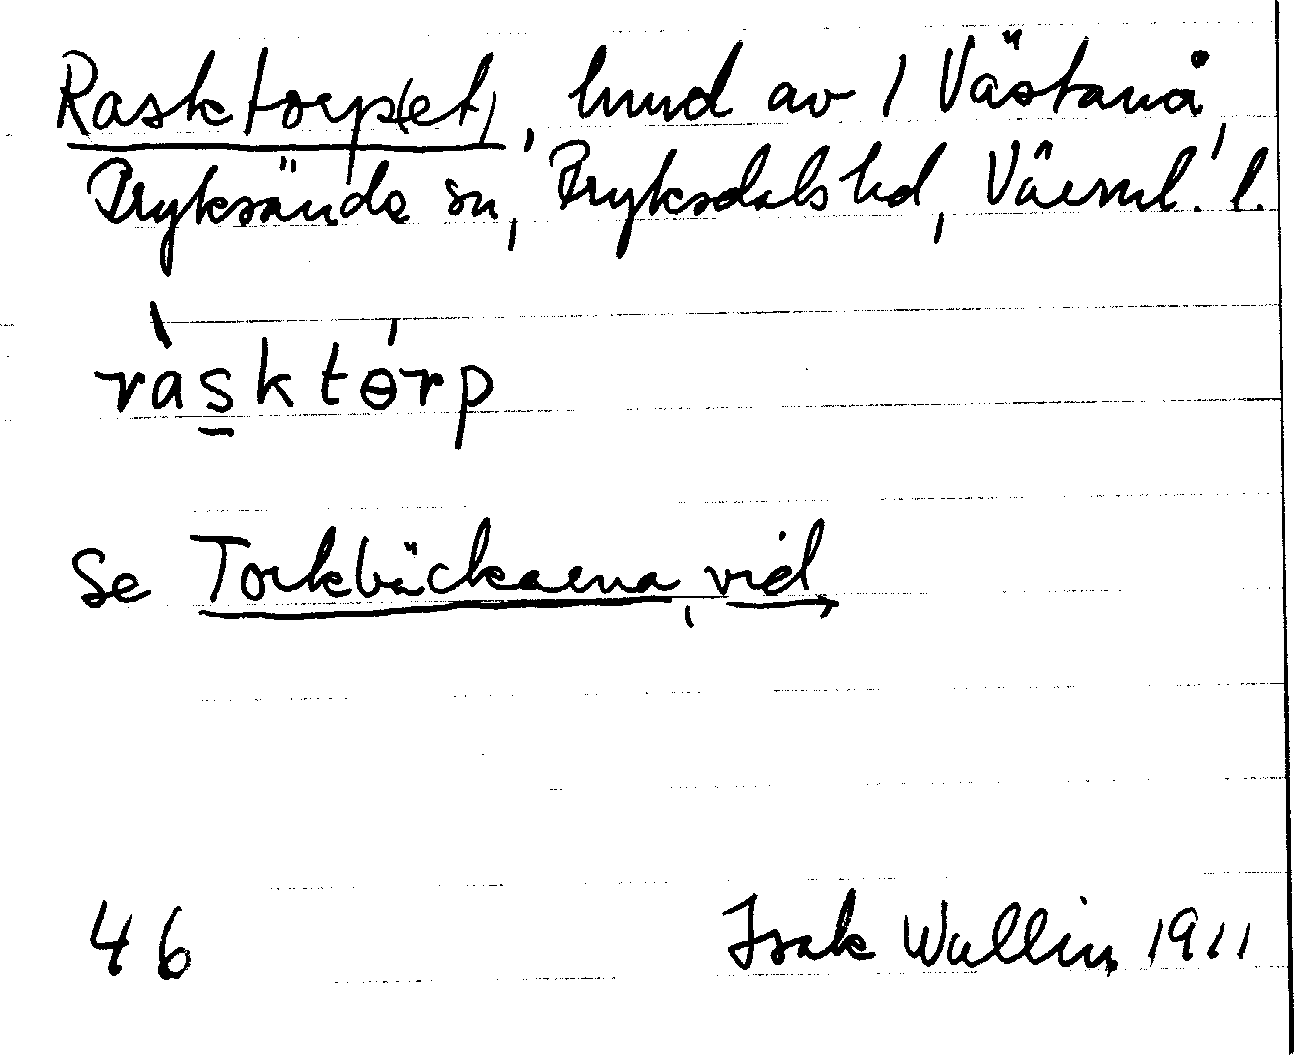 Rasktorp(et), hmd av 1 Västanå,
Fryksände sn, Fryksdals hd, Värml. l.
ràsktɵ́rp
Se Torkbäckarna, vid
46 Isak Wallin, 1911